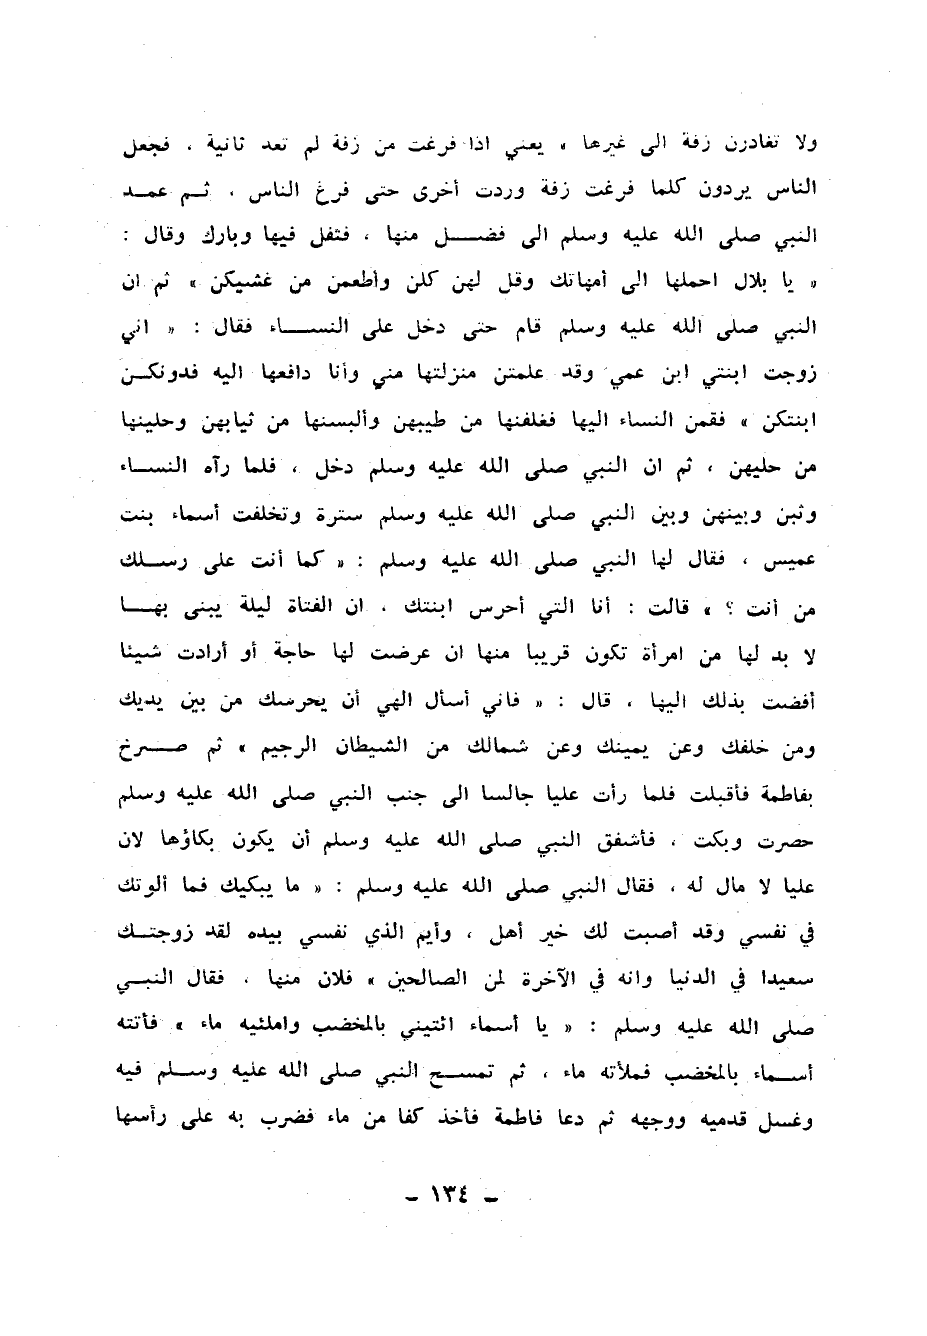 ولا تغادرن زفة الى غيرها » يعني اذا فرغت من زفة لم تعد ثانية ، فجعل
الناس يردون كلما فرغت زفة وردت أخرى حتى فرغ الناس ، ثم عمد
النبي صلى الله عليه وسلم الى فضل منها ، فتفل فيها وبارك وقال :
« يا بلال احملها الى أمهاتك وقل لهن كلن وأطعمن من غشيكن » ثم ان
النبي صلى الله عليه وسلم قام حتى دخل على النساء فقال : « اني
زوجت ابنتي ابن عمي وقد علمتن منزلتها مني وأنا دافعها اليه فدونكن
ابنتكن » فقمن النساء اليها فغلفنها من طيبهن وألبسنها من ثيابهن وحلينها
من حليهن ، ثم ان النبي صلى الله عليه وسلم دخل ، فلما رآه النساء
وثبن وبينهن وبين النبي صلى الله عليه وسلم سترة وتخلفت أسماء بنت
عميس ، فقال لها النبي صلى الله عليه وسلم : « كما أنت على رسلك
من أنت ؟ » قالت : أنا التي أحرس ابنتك ، ان الفتاة ليلة يبنى بها
لا بد لها من امرأة تكون قريبا منها ان عرضت لها حاجة أو أرادت شيئا
أفضت بذلك اليها ، قال : « فاني أسأل الهي أن يحرسك من بين يديك
ومن خلفك وعن يمينك وعن شمالك من الشيطان الرجيم » ثم صرخ
بفاطمة فأقبلت فلما رأت عليا جالسا الى جنب النبي صلى الله عليه وسلم
حصرت وبكت ، فأشفق النبي صلى الله عليه وسلم أن يكون بكاؤها لان
عليا لا مال له ، فقال النبي صلى الله عليه وسلم : « ما يبكيك فما ألوتك
في نفسي وقد أصبت لك خير أهل ، وأيم الذي نفسي بيده لقد زوجتك
سعيدا في الدنيا وانه في الآخرة لمن الصالحين » فلان منها ، فقال النبي
صلى الله عليه وسلم : « يا أسماء ائتيني بالمخضب واملئيه ماء » فأتته
أسماء بالمخضب فملأته ماء ، ثم تمسح النبي صلى الله عليه وسلم فيه
وغسل قدميه ووجهه ثم دعا فاطمة فأخذ كفا من ماء فضرب به على رأسها
- ١٣٤ -